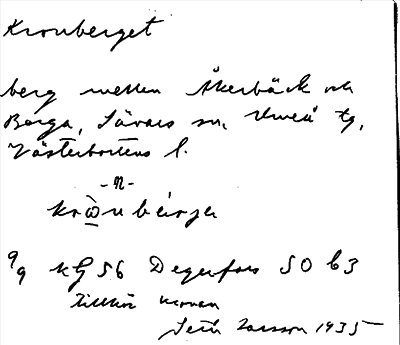 Kronberget
berg mellan Åkerbäck och
Berga, Sävars sn, Umeå tg,
Västerbottens l.
-n-
kro̱nbärje
9/9 KG 56 Degerfors SO b3
Tillhör kronan
Seth Larsson 1935